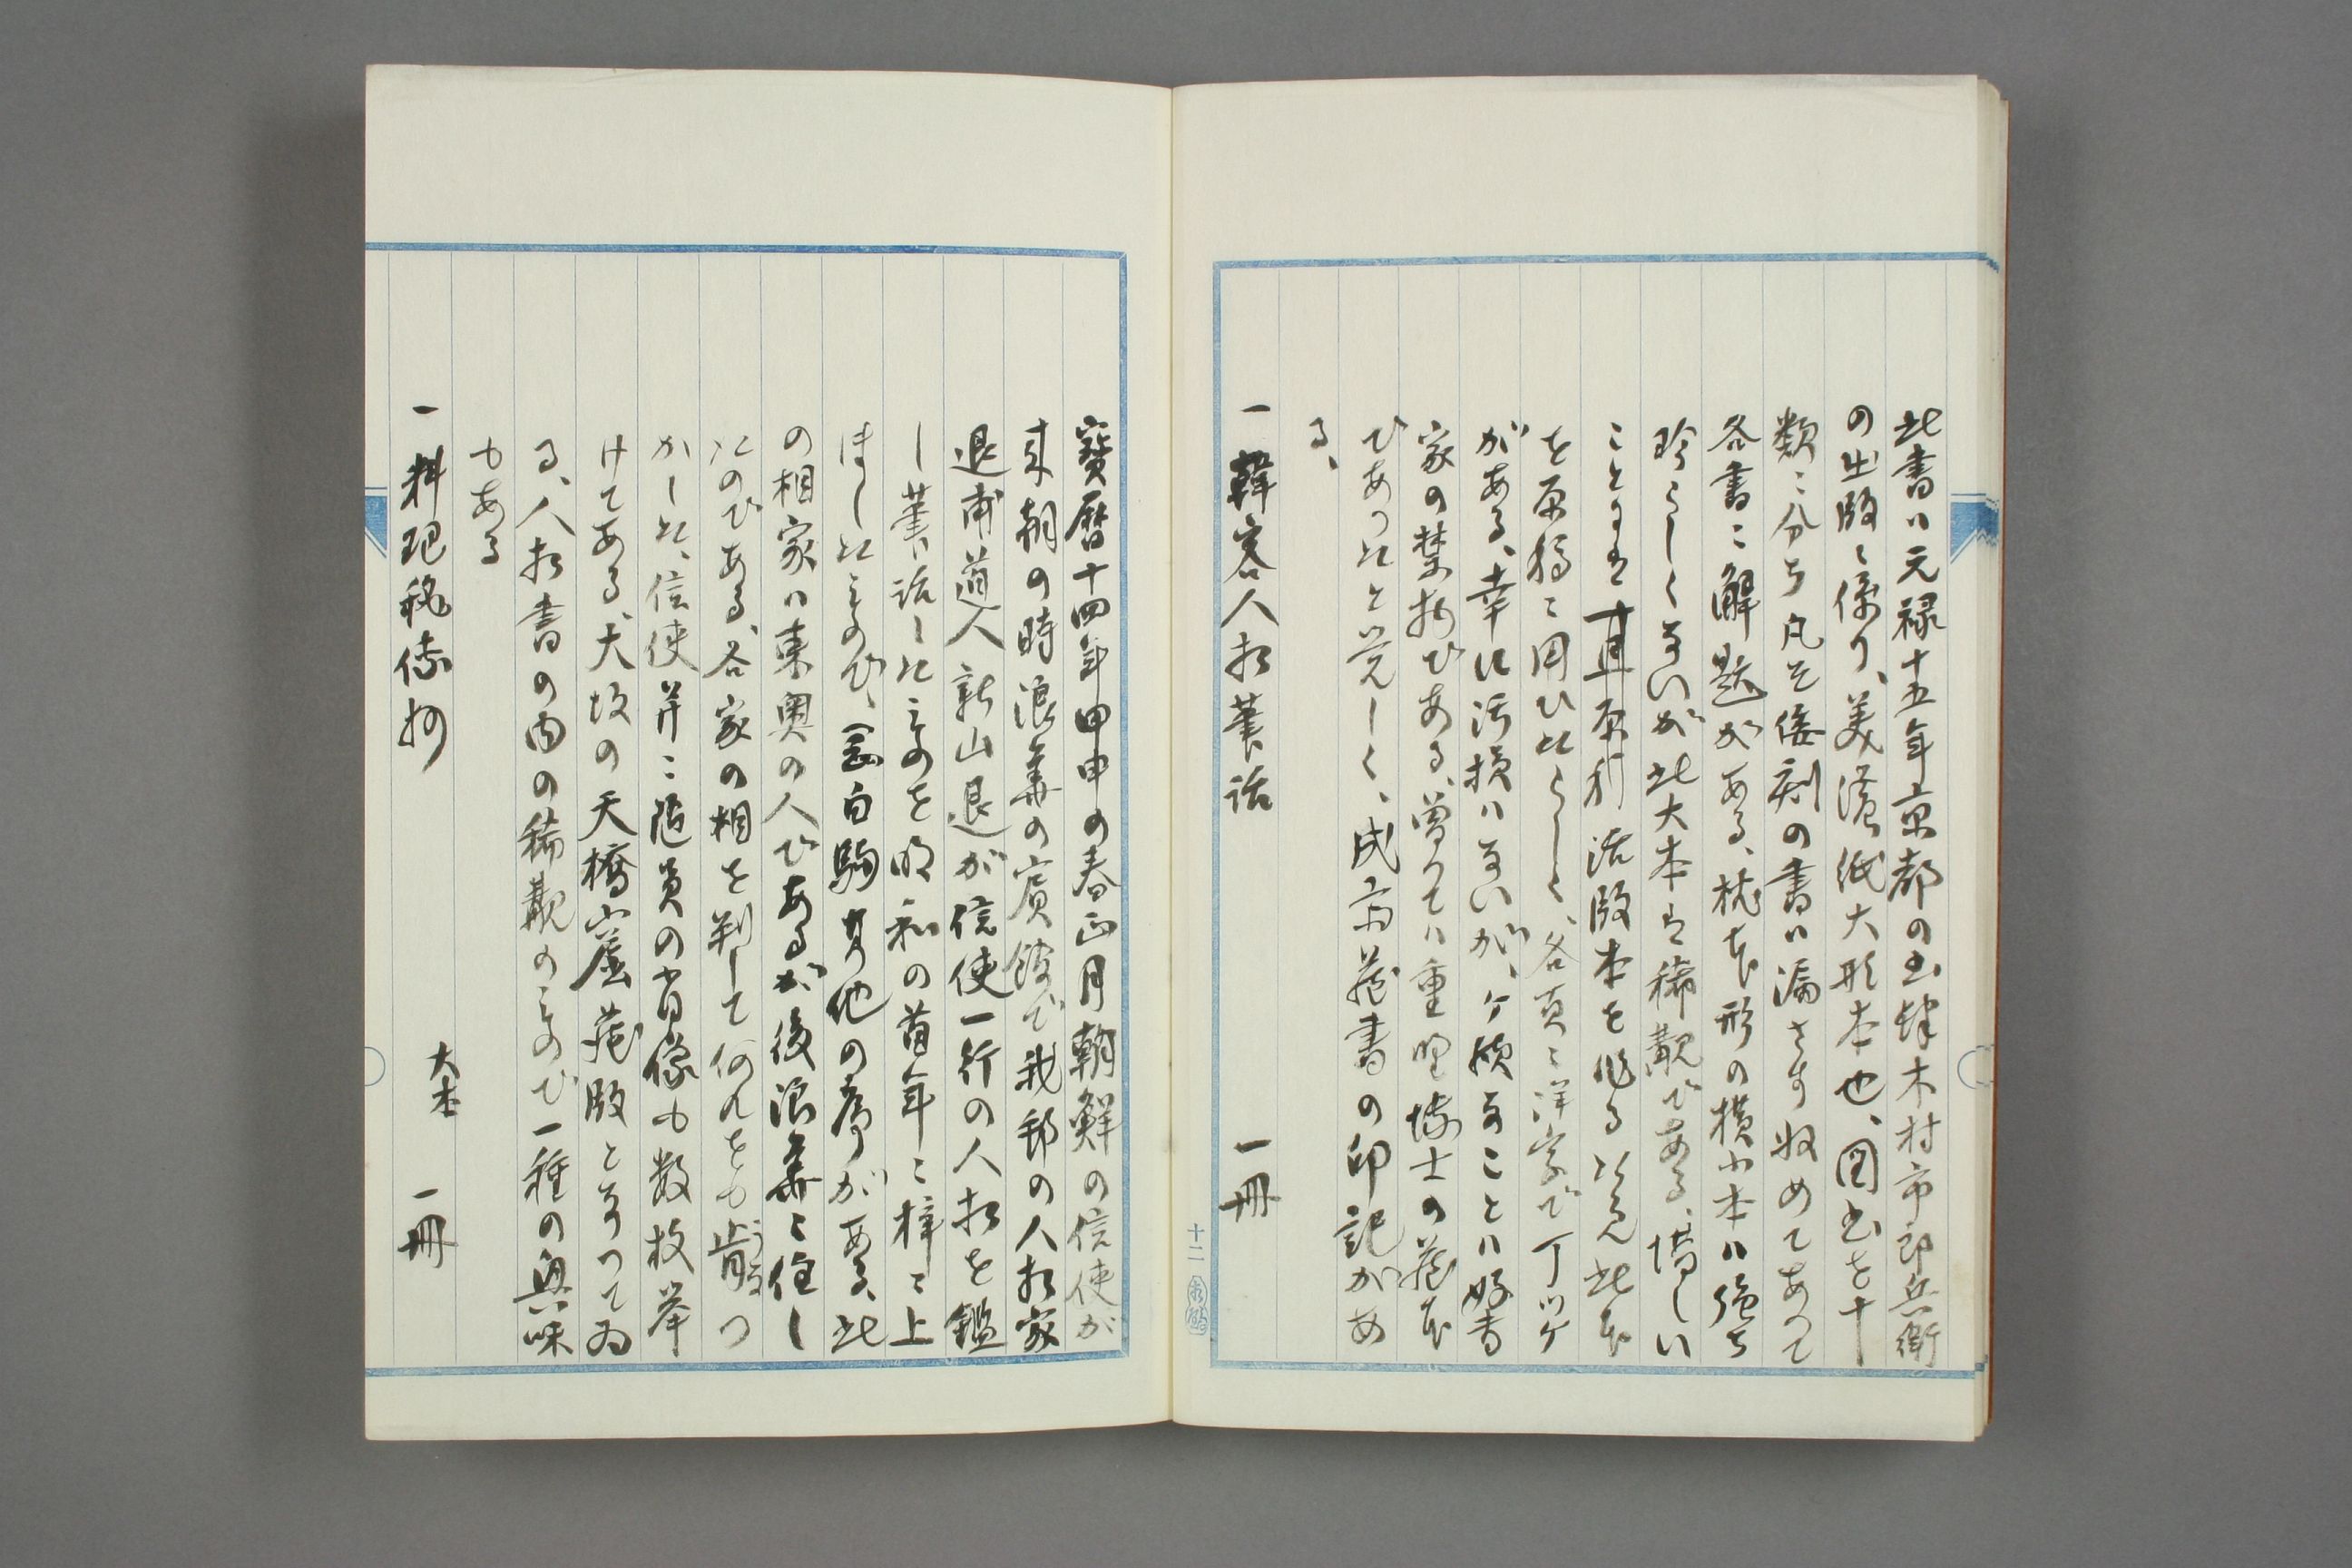 此書ハ元禄十五年京都の書肆木村市郎兵衛
の出版ニ係り、美濃紙大形本也、図書を十
類ニ分ち凡そ倭刻の書ハ漏さず収めてあつて
各書ニ解題がある、枕本形の横小本ハ強ち
珍らしくないが此大本は稀覯である、惜しい
ことには直原刊活版本を作る以, 此本
を原稿ニ用ひたらしく、各頁ニ洋字で丁ツケ
がある、幸に汚損ハないが、ケ様なことハ好書
家の禁物である、曽つてハ重野博士の蔵本
であつたと覚しく、成斎蔵書の印記があ
る、
一韓客人相筆話 一冊
十二
寶暦十四年甲申の春正月朝鮮の信使が
来朝の時浪華の賓館で我邦の人相家
退甫道人新山退が信使一行の人相を鑑
し筆話したものを明和の首年ニ梓ニ上
ほしたもので、岡白駒其他の序がある、此
の相家ハ東奥の人であるが後浪華ニ住し
たのである、各家の相を判して何れをも肯つ
かした、信使并ニ随員の肖像も数枚挙
けてある、大坂の天橋山房蔵版となつてゐ
る、人相書の内の稀覯のもので一種の興味
もある
一料理秘伝抄 大本 一冊